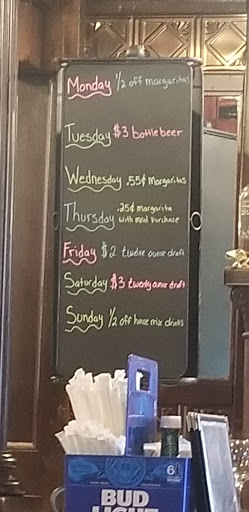 Monday 1/2 off margaritas
Tuesday $3 bottle beer
Wednesday .55¢ Margaritas
Thursday .25¢ margarita
with meal purchase
Friday $2 twelve ounce draft
Saturday $3 twenty ounce draft
Sunday 1/2 off house mix drinks
6
BUD
LIGHT